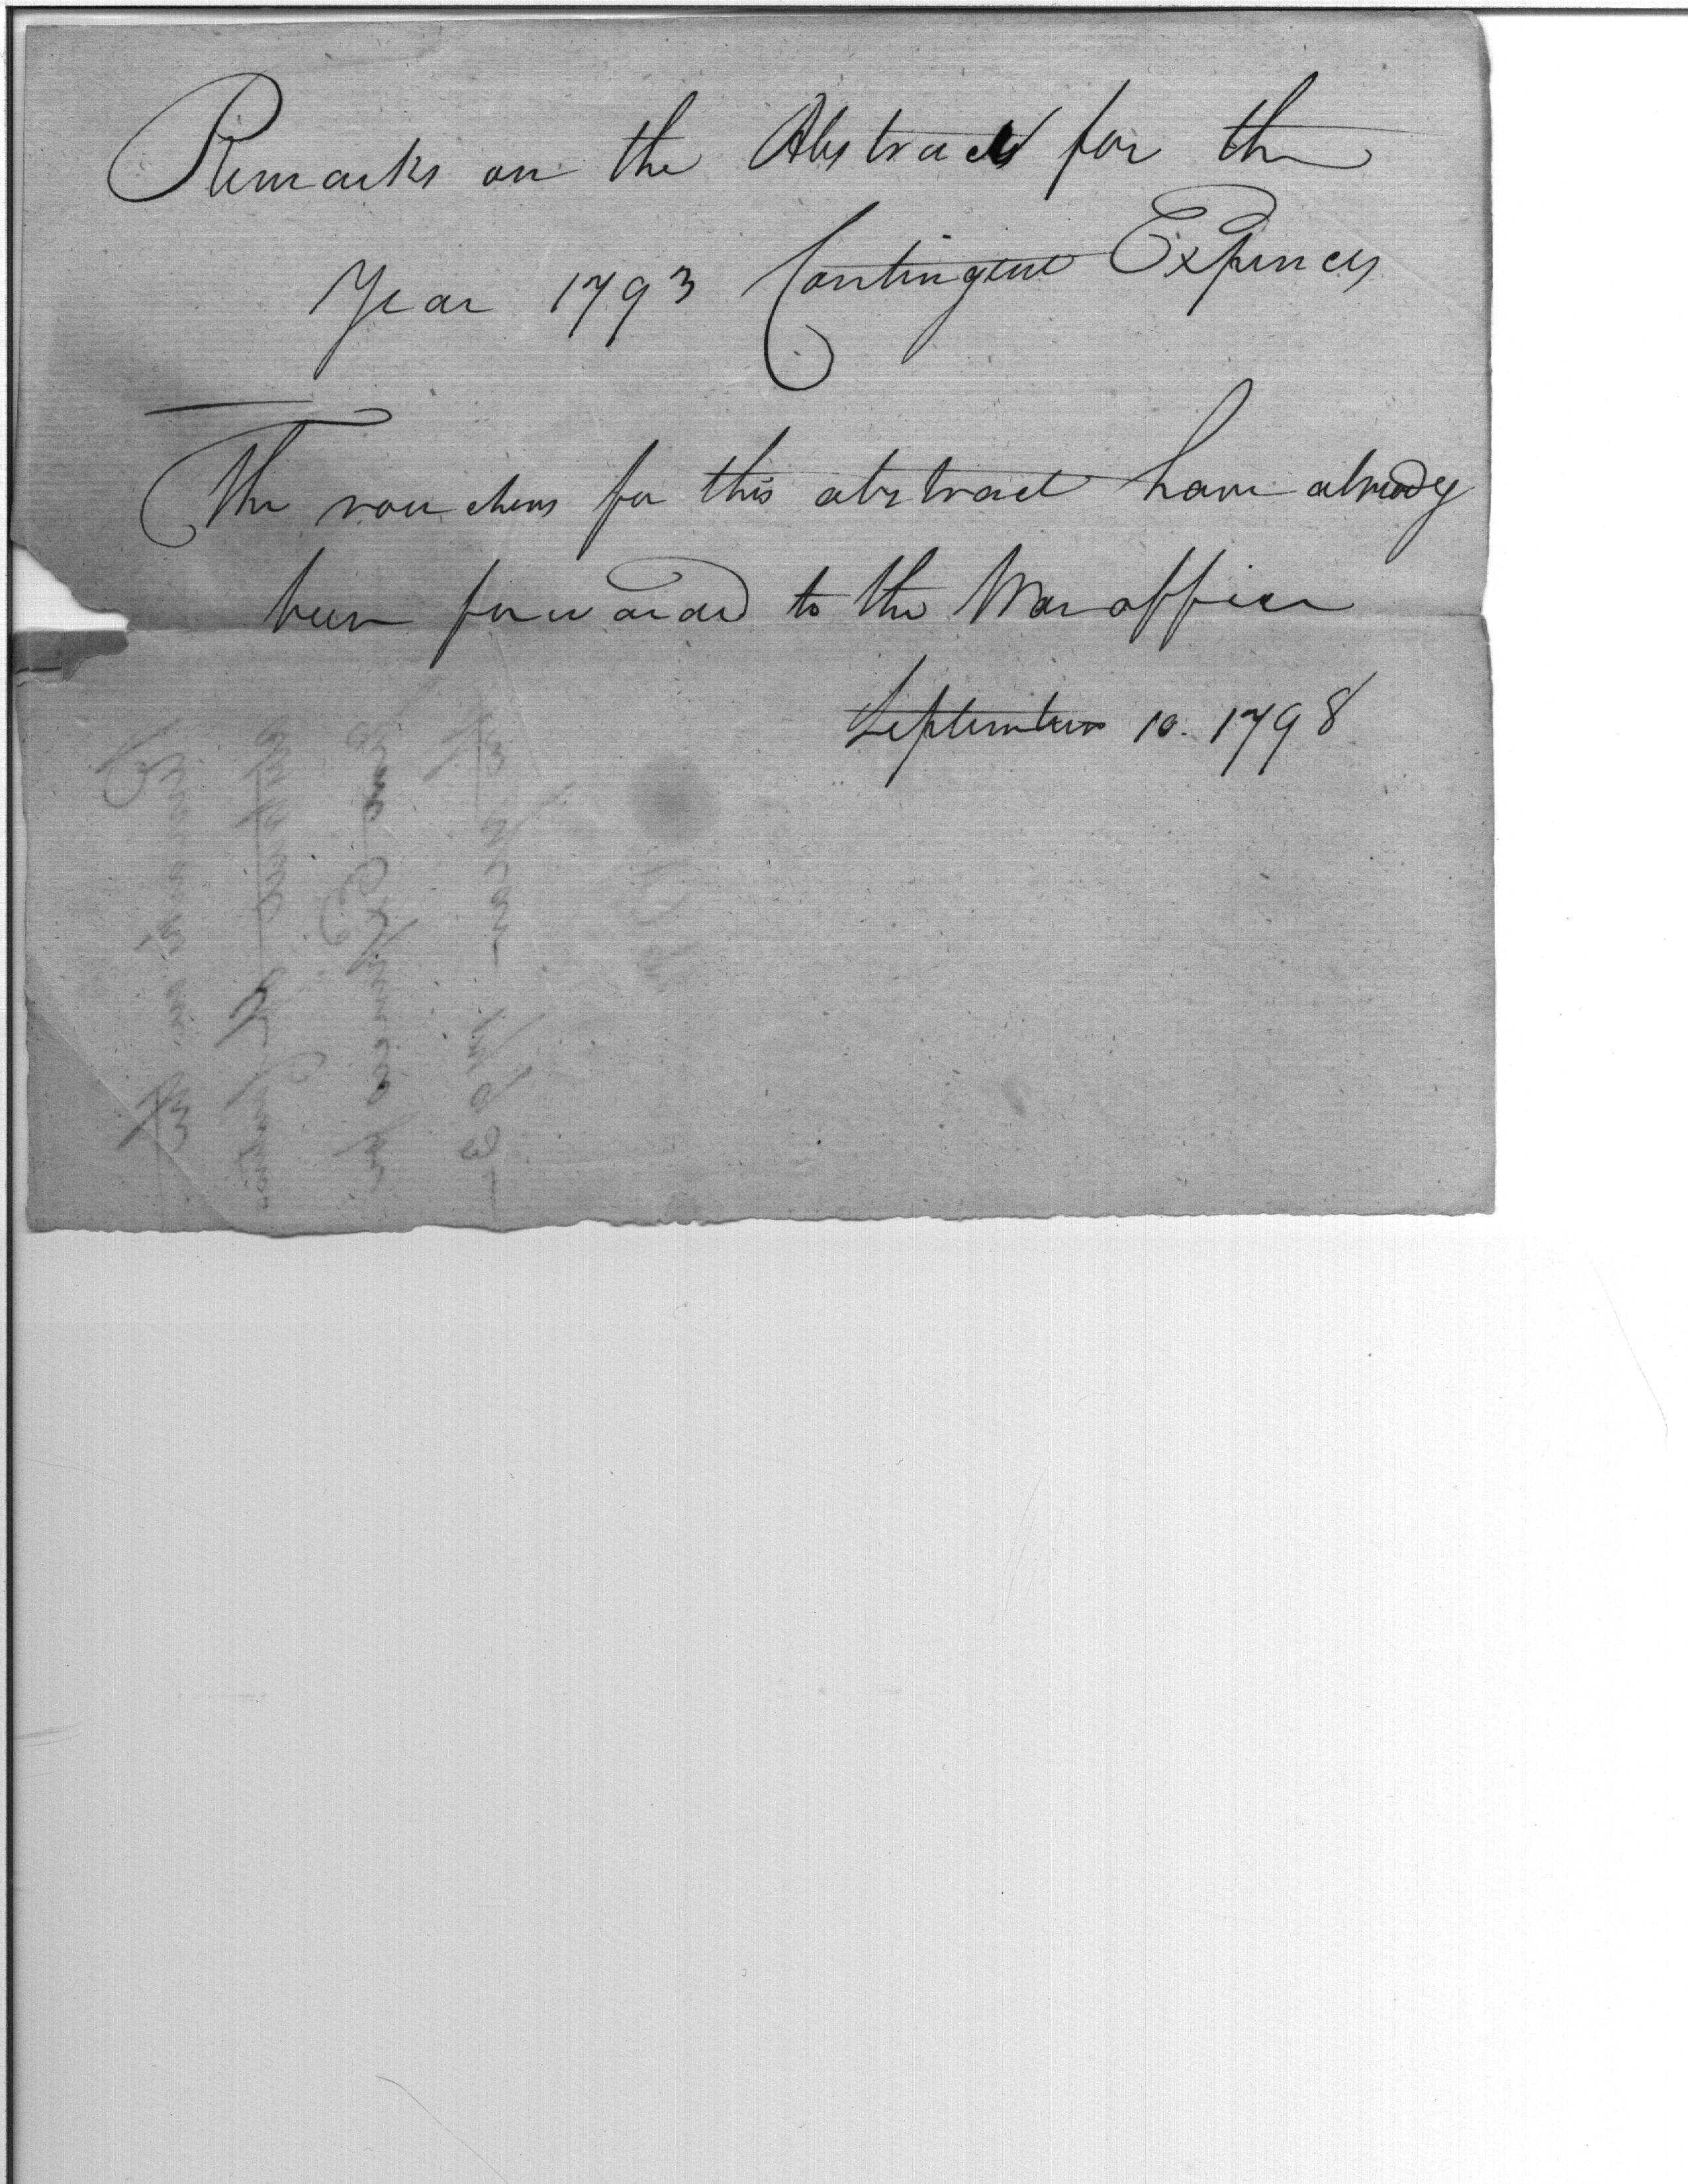 Remarks on the Abstract for the
Year 1793 Contingent Expences
The vouchers for this abstract have already
been forward to the War office
September 10. 1798